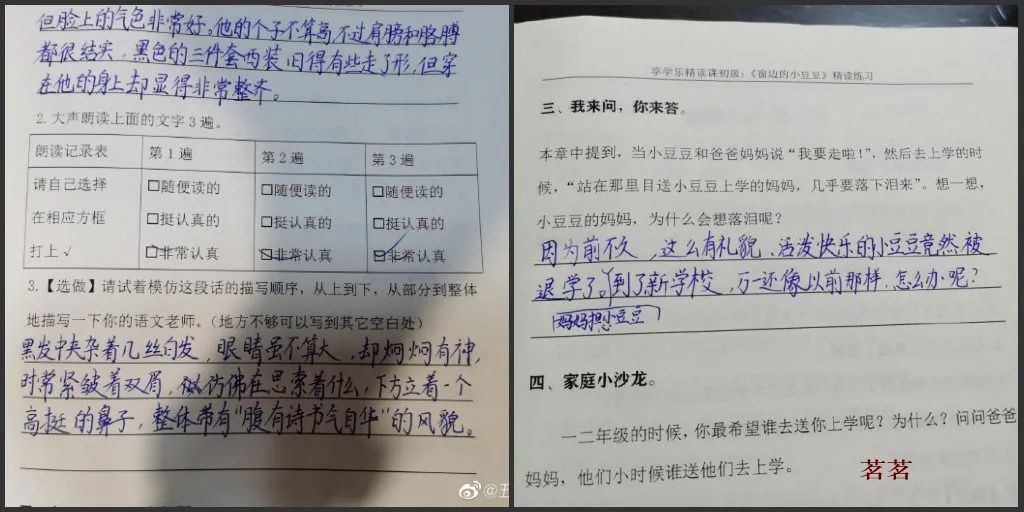 但脸上的气色非常好。他的个子不算高,不过肩膀和胳膊
都很结实,黑色的三件套西装旧得有些走了形,但穿
在他的身上却显得非常整齐。
2. 大声朗读上面的文字 3 遍。
朗读记录表 第 1 遍 第 2 遍 第 3 遍
请自己选择 □随便读的 □随便读的 □随便读的
在相应方框 □挺认真的 □挺认真的 □挺认真的
打上 √ □非常认真 ☑非常认真 ☑非常认真
3.【选做】请试着模仿这段话的描写顺序,从上到下,从部分到整体
地描写一下你的语文老师。(地方不够可以写到其它空白处)
黑发中夹杂着几丝白发,眼睛虽不算大,却炯炯有神,
时常紧皱着双眉,似仿佛在思索着什么,下方立着一个
高挺的鼻子,整体带有“腹有诗书气自华”的风貌。
享学乐精读课初级:《窗边的小豆豆》精读练习
三、我来问,你来答。
本章中提到,当小豆豆和爸爸妈妈说“我要走啦!”,然后去上学的时
候,“站在那里目送小豆豆上学的妈妈,几乎要落下泪来”。想一想,
小豆豆的妈妈,为什么会想落泪呢?
因为前不久,这么有礼貌、活发快乐的小豆豆竟然被
退学了。到了新学校,万一还像以前那样,怎么办呢?
妈妈担小豆豆
四、家庭小沙龙。
一二年级的时候,你最希望谁去送你上学呢?为什么?问问爸爸
妈妈,他们小时候谁送他们去上学。
茗茗